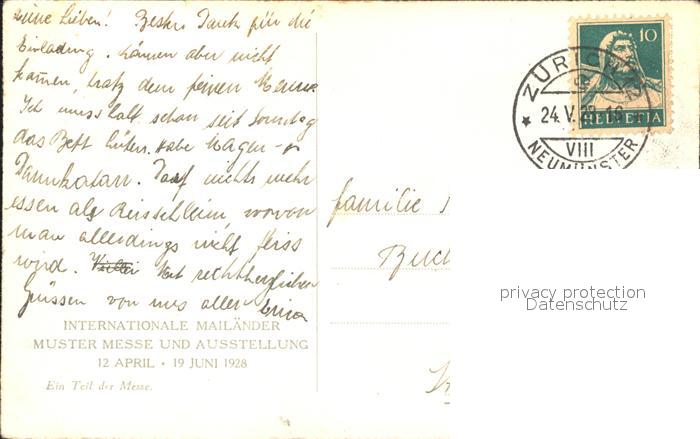 Meine Lieben! Besten Dank für die
Einladung. Können aber nicht
kommen, trotz dem feinen Menue
Ich muss halt schon seit Sonntag
das Bett hüten. Habe Magen- &
Darmkatarr. Darf nichts mehr
essen als Reisschleim, wovon
man allerdings nicht feiss
wird. Mit rechtherzlichen
Grüssen von uns allen Erica
INTERNATIONALE MAILÄNDER
MUSTER MESSE UND AUSSTELLUNG
12 APRIL • 19 JUNI 1928
Ein Teil der Messe.
10
HELVETIA
ZÜRICH
24. V.
VIII
NEUMÜNSTER
Familie
Buch
privacy protection
Datenschutz